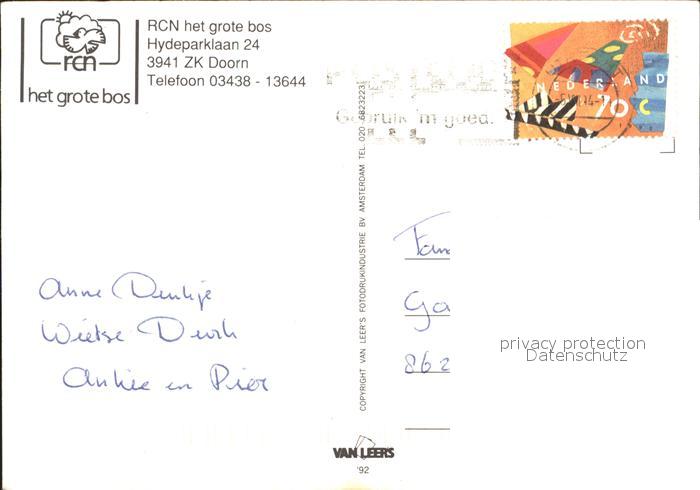 rcn
het grote bos
RCN het grote bos
Hydeparklaan 24
3941 ZK Doorn
Telefoon 03438 - 13644
NEDERLAND
70 c
Gebruik 'm goed.
COPYRIGHT VAN LEER'S FOTODRUKINDUSTRIE BV AMSTERDAM TEL 020 - 6823223
Fam
Ga
862
privacy protection
Datenschutz
Anne
Wietse Durk
Ankie en Pier
VAN LEER'S
'92